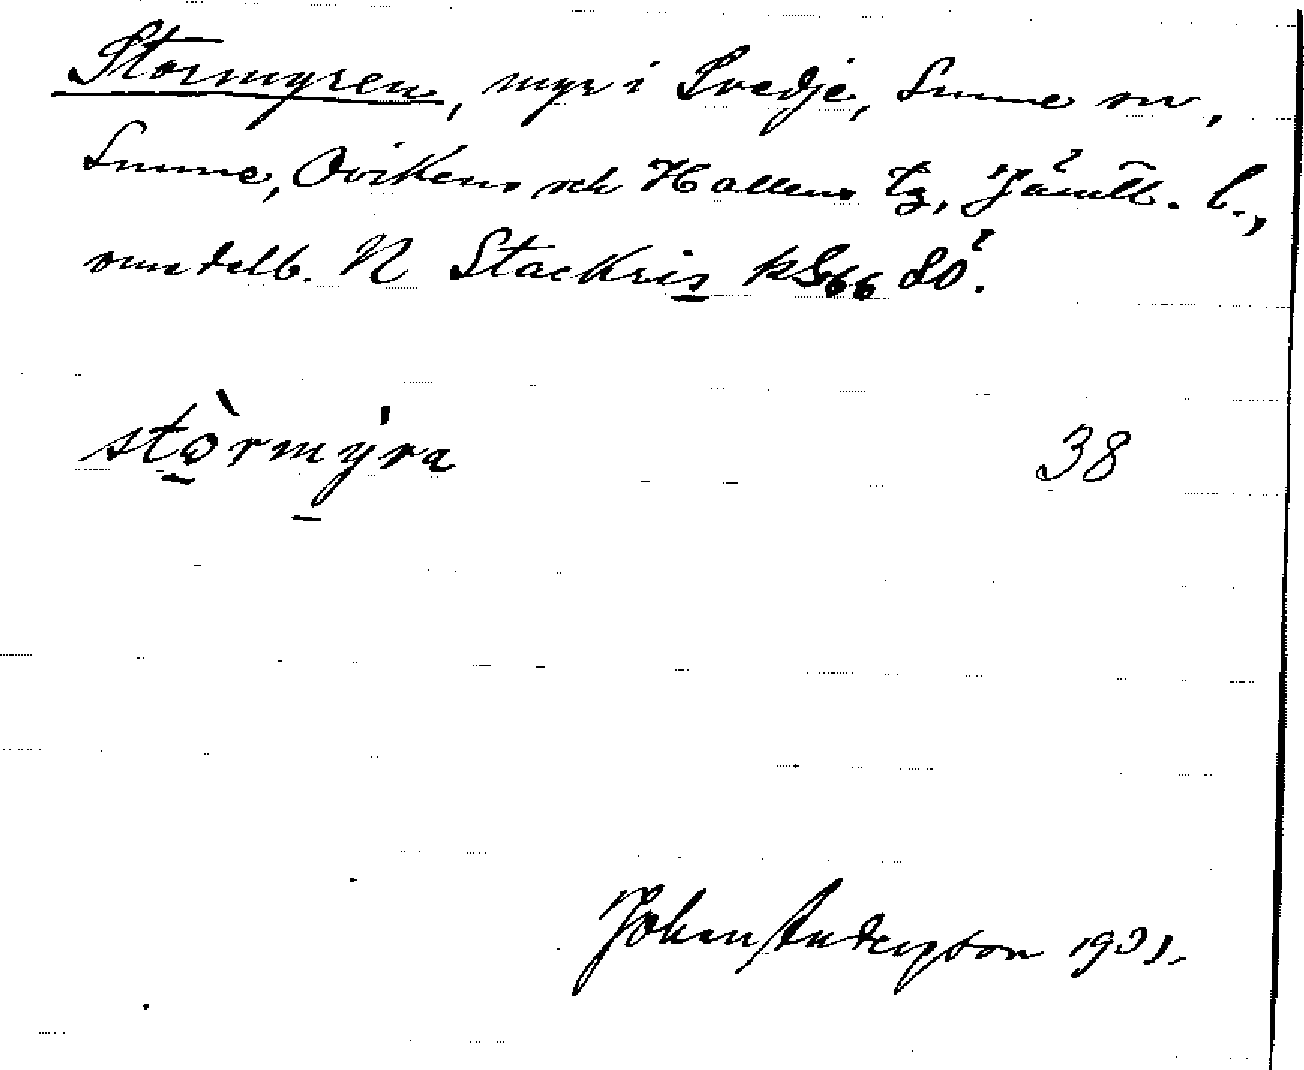 Stormyren, myr i Svedje, Sunne sn,
Sunne, Ovikens och Hallens tg, Jämtl. l.,
omedelb. N Stackris kS66 SO.
stormyra 38
Johan Anderson 1931.